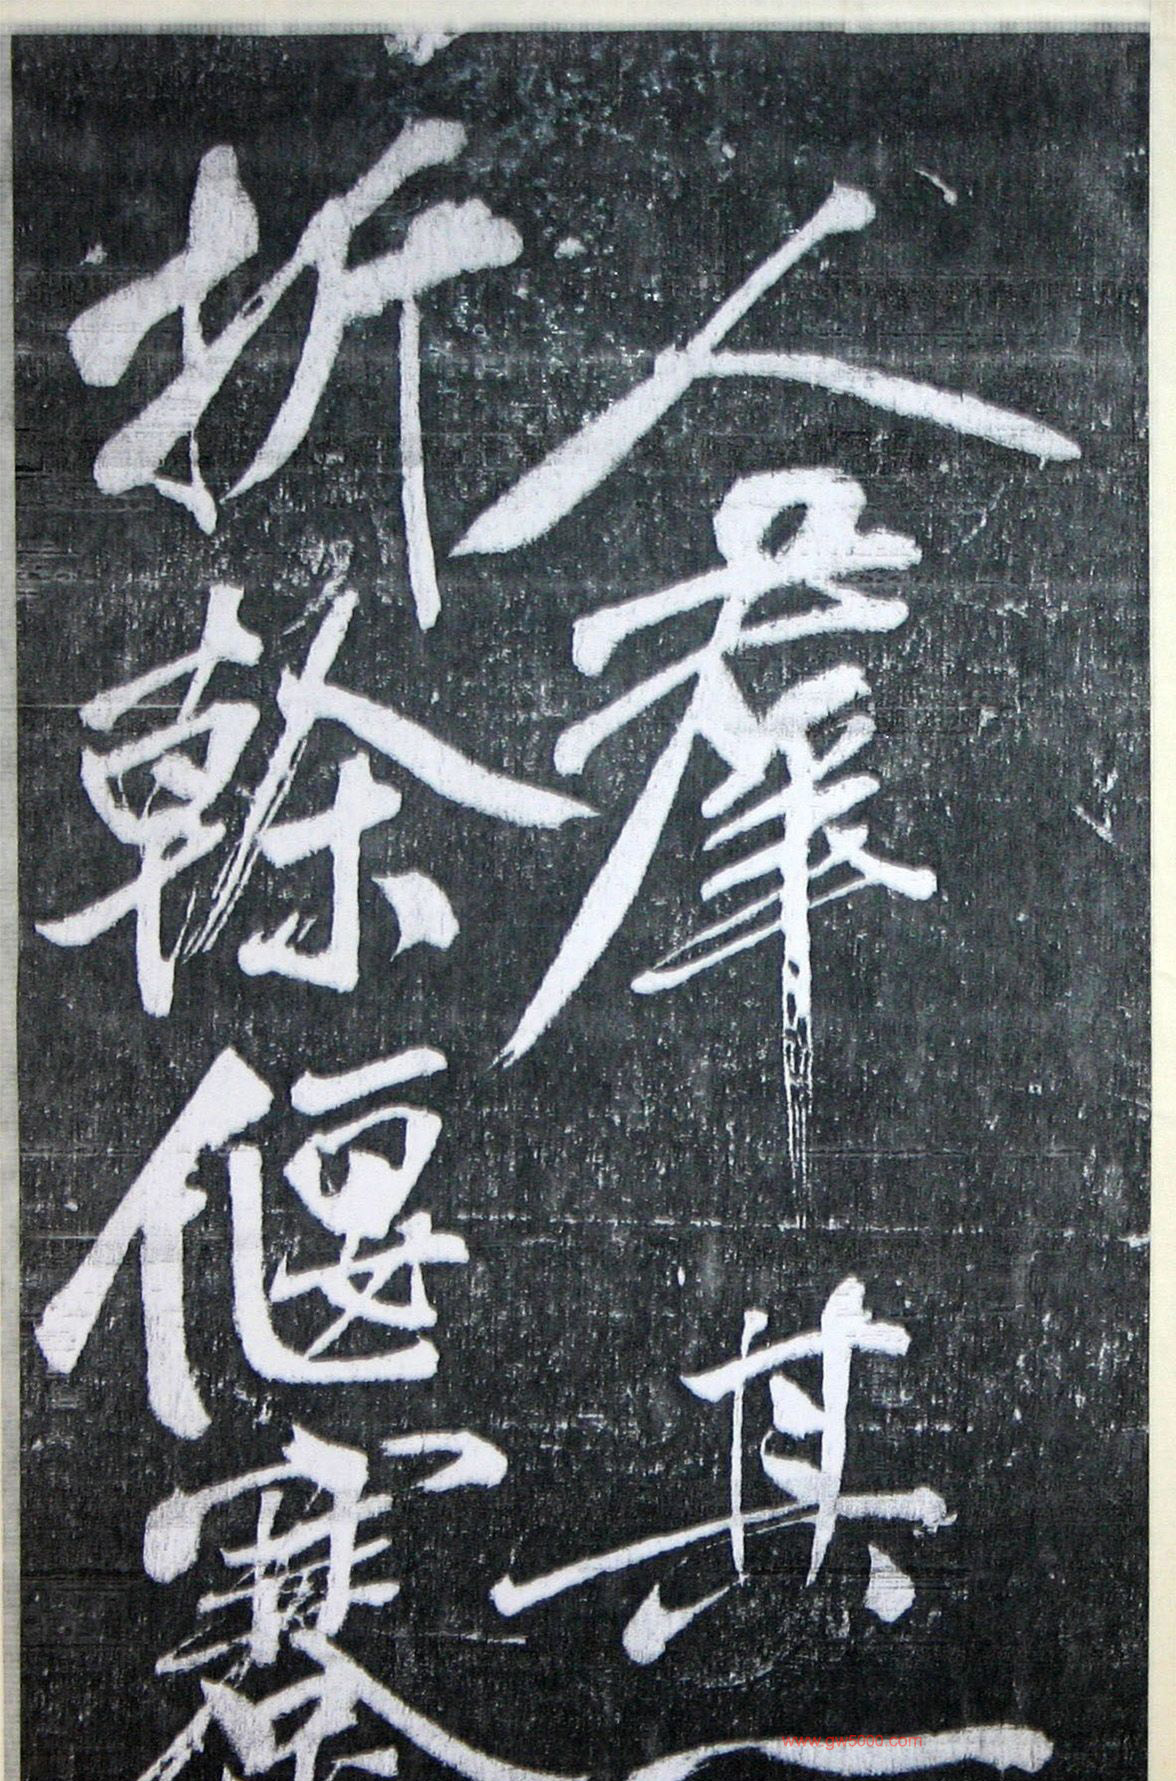 人羣其一
折榦偃蹇
www.gw5000.com